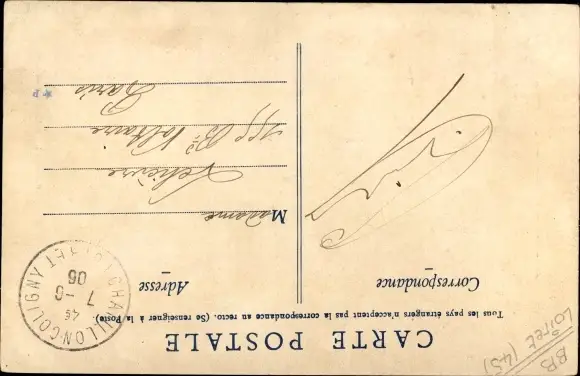 CARTE POSTALE
Tous les pays étrangers n'acceptent pas la correspondance au recto. (Se renseigner à la Poste)
Correspondance
Adresse
Madame
Lelièvre
Bd Voltaire
Paris
CHATILLON-COLIGNY
LOIRET
7 - 6
06
BB
Loiret (45)